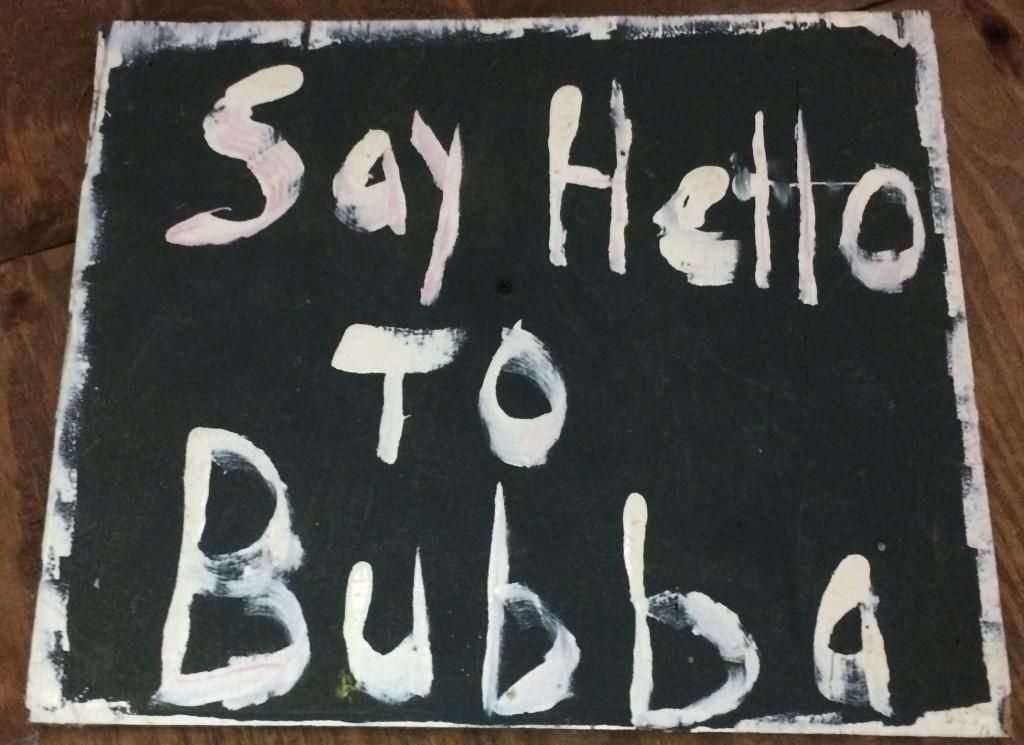 Say Hello
TO
Bubba